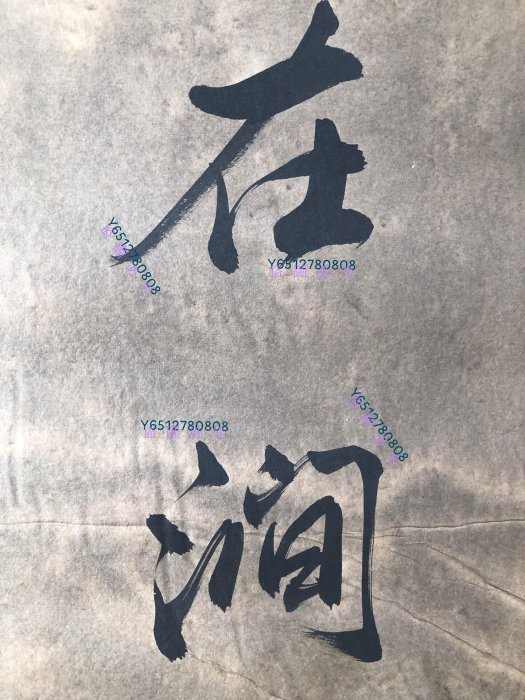 在
Y6512780808
Y6512780808
Y6512780808
Y6512780808
澗